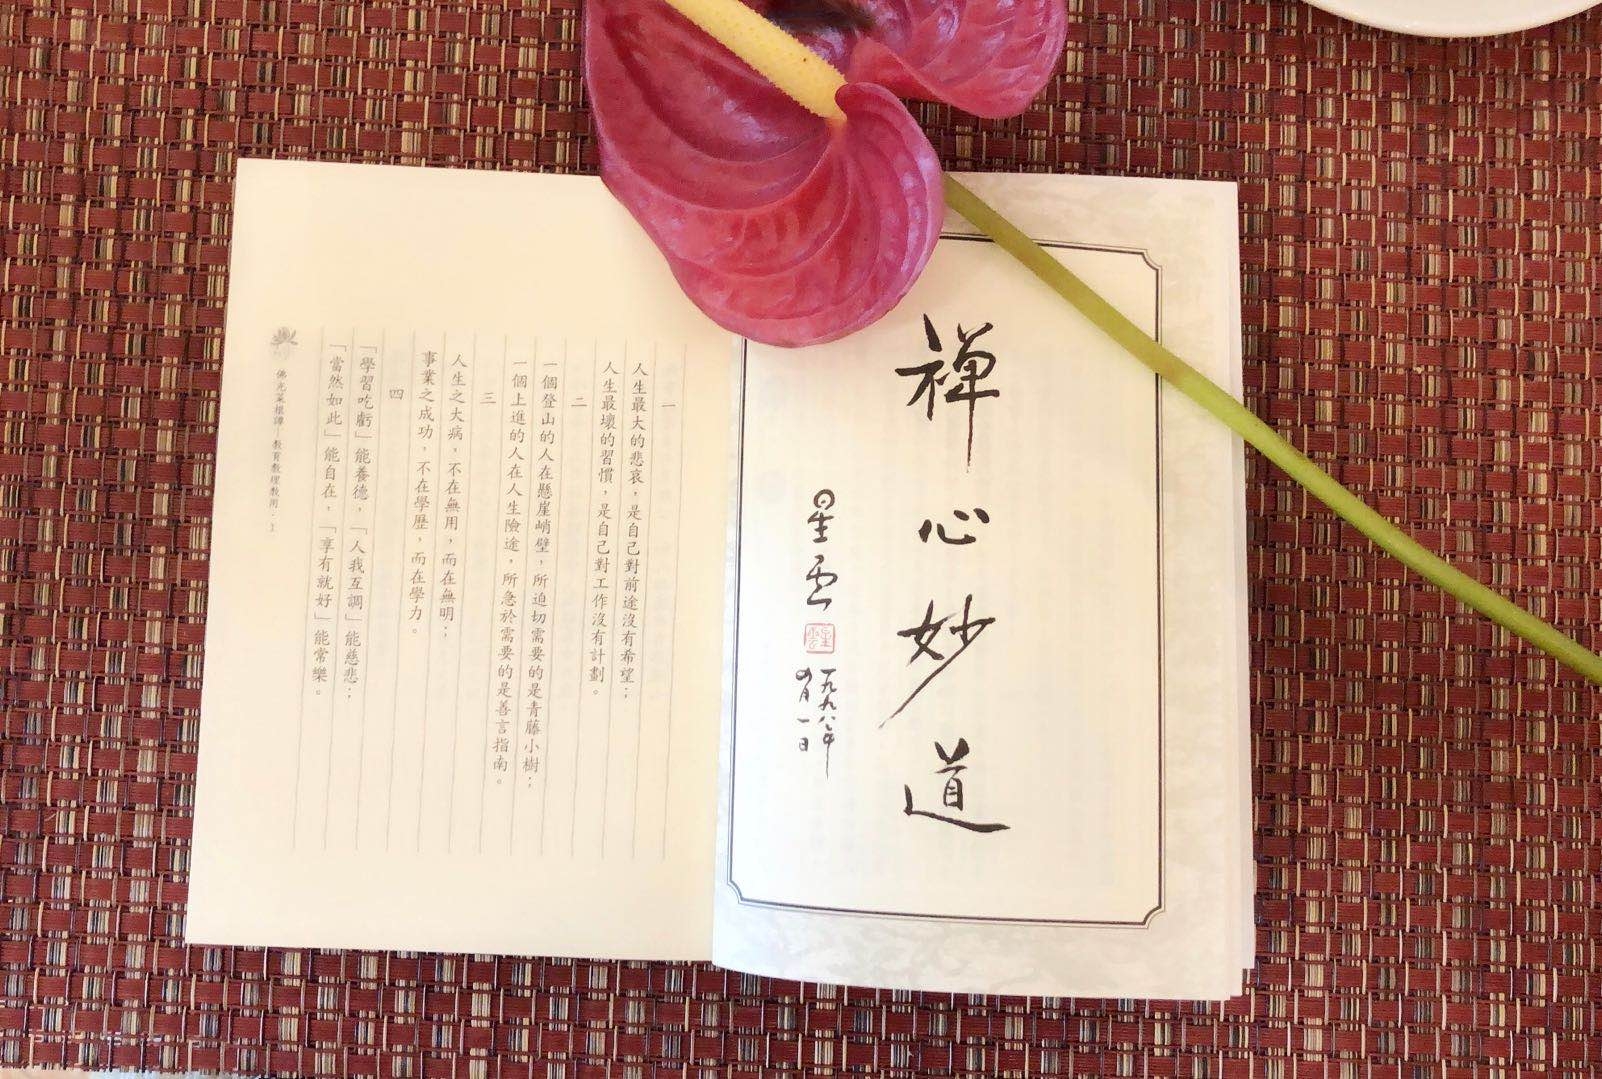 禅心妙道
星云
星雲
一九九八年
四月一日
一
人生最大的悲哀，是自己對前途沒有希望；
人生最壞的習慣，是自己對工作沒有計劃。
二
一個登山的人在懸崖峭壁，所迫切需要的是青藤小樹；
一個上進的人在人生險途，所急於需要的是善言指南。
三
人生之大病，不在無用，而在無明；
事業之成功，不在學歷，而在學力。
四
「學習吃虧」能養德，「人我互調」能慈悲；
「當然如此」能自在，「享有就好」能常樂。
佛光菜根譚 教育教理教用·1